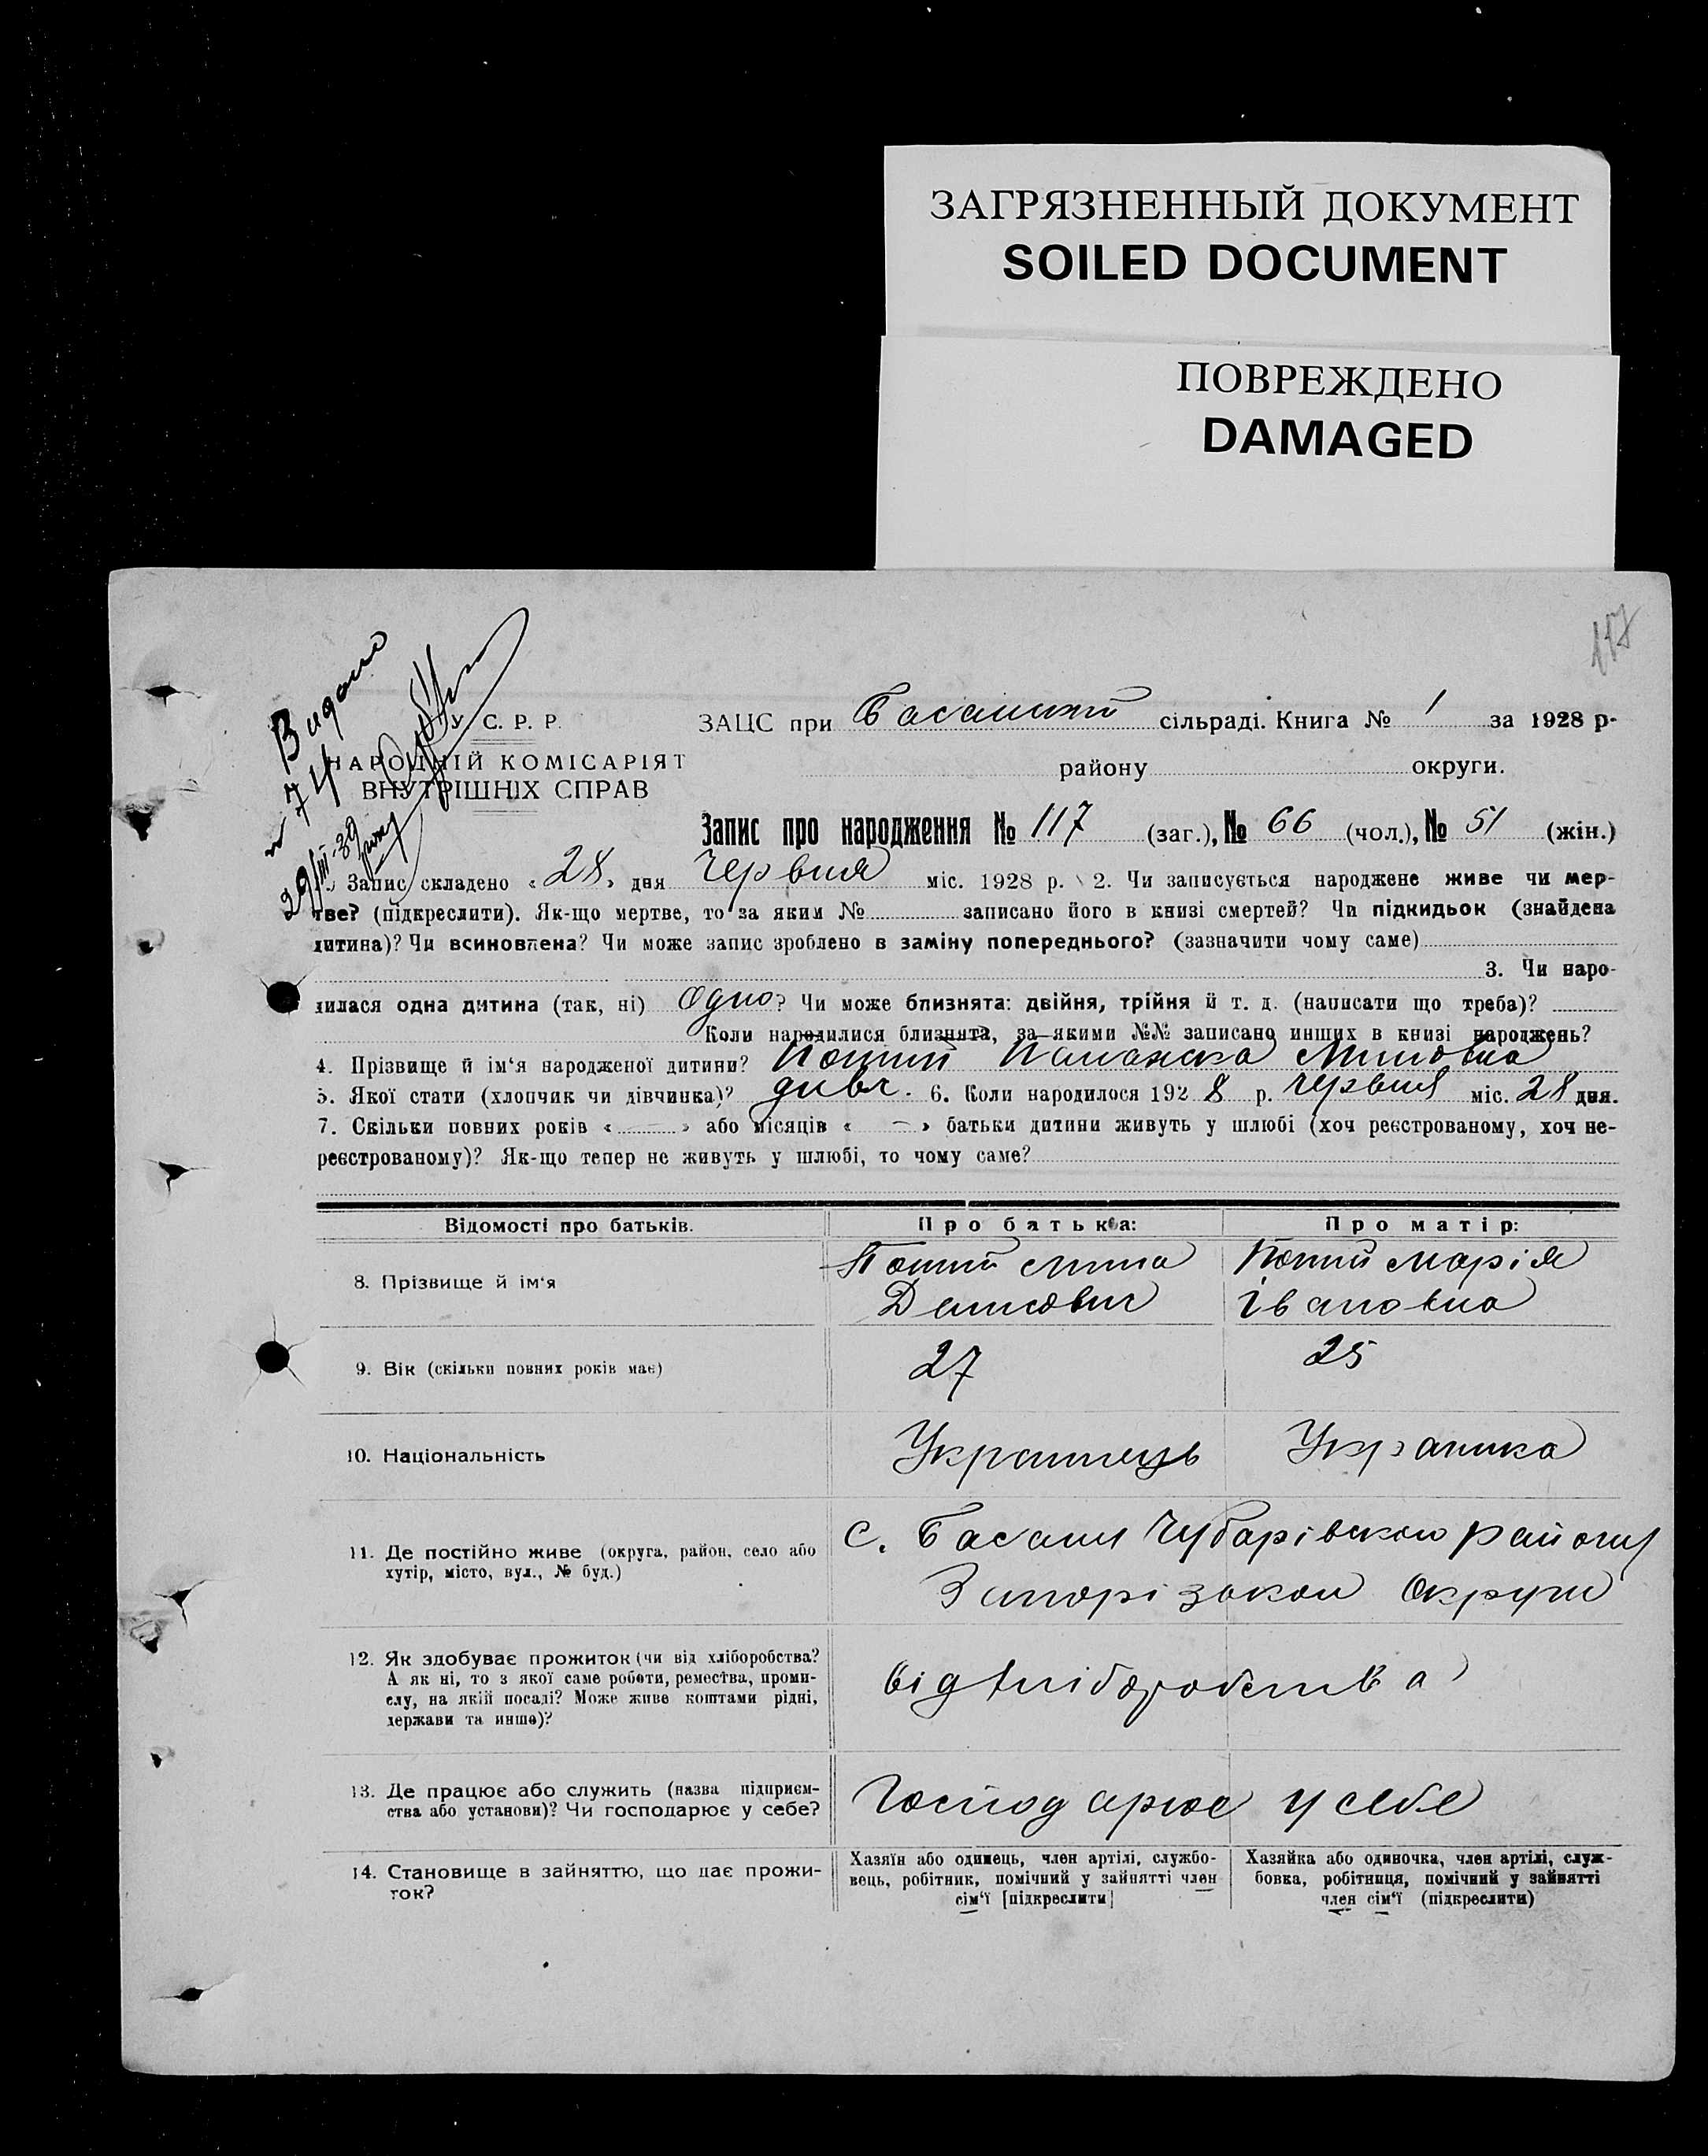 ЗАГРЯЗНЕННЫЙ ДОКУМЕНТ
SOILED DOCUMENT
ПОВРЕЖДЕНО
DAMAGED
117
Видано
№ 74
29/III-39 року
У. С. Р. Р.
НАРОДНІЙ КОМІСАРІЯТ
ВНУТРІШНІХ СПРАВ
ЗАЦС при Басанській сільраді. Книга № 1 за 1928 р-
району округи.
Запис про народження № 117 (заг.), № 66 (чол.), № 51 (жін.)
Запис складено «28» дня Червня міс. 1928 р. 2. Чи записується народжене живе чи мер-
тве? (підкреслити). Як-що мертве, то за яким № записано його в книзі смертей? Чи підкидьок (знайдена
дитина)? Чи всиновлена? Чи може запис зроблено в заміну попереднього? (зазначити чому саме)
3. Чи наро-
дилася одна дитина (так, ні) Одно? Чи може близнята: двійня, трійня й т. д. (написати що треба)?
Коли народилися близнята, за якими №№ записано инших в книзі народжень?
4. Прізвище й ім‘я народженої дитини? Миновна
5. Якої стати (хлопчик чи дівчинка)? дивч. 6. Коли народилося 1928 р. червня міс. 28 дня.
7. Скільки повних років « — » або місяців « — » батьки дитини живуть у шлюбі (хоч реєстрованому, хоч не-
реєстрованому)? Як-що тепер не живуть у шлюбі, то чому саме?
Відомості про батьків. Про батька: Про матір:
8. Прізвище й ім‘я
Мина Марія
Денисович Івановна
9. Вік (скільки повних років має) 27 25
10. Національність Українець Українка
11. Де постійно живе (округа, район, село або
хутір, місто, вул., № буд.)
с. Басань Чубарівськом району
Запорізькои Округи
12. Як здобуває прожиток (чи від хліборобства?
А як ні, то з якої саме роботи, ремества, проми-
слу, на якій посаді? Може живе коштами рідні,
держави та инше)?
від хліборобства
13. Де працює або служить (назва підприєм-
ства або установи)? Чи господарює у себе?
Господарює у себе
14. Становище в зайняттю, що дає прожи-
ток?
Хазяїн або одинець, член артілі, службо-
вець, робітник, помічний у зайнятті член
сім‘ї [підкреслити]
Хазяйка або одиночка, член артілі, служ-
бовка, робітниця, помічний у зайнятті
член сім‘ї (підкреслити)